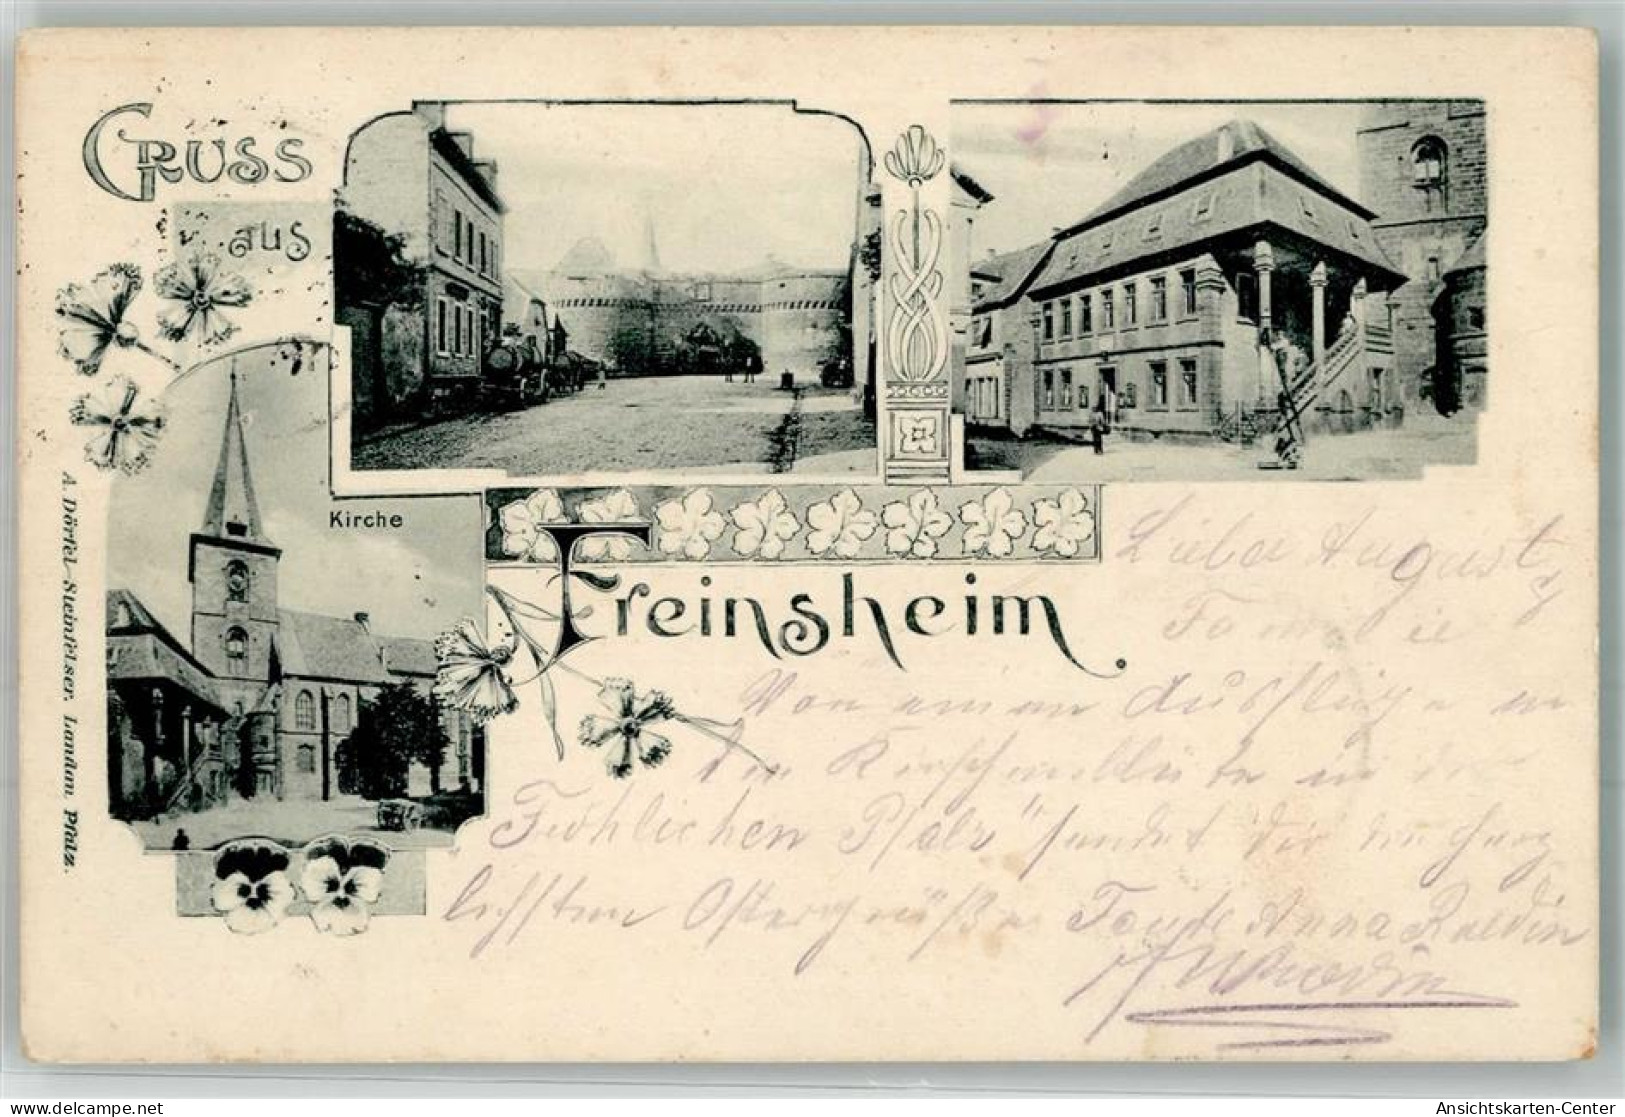 Gruss
aus
Kirche
Freinsheim.
A. Dörfel-Steinfelser, Landau Pfalz.
Liebe August
Familie
Von einem Ausfluge in
die Kirschenblüte in der
"Fröhlichen Pfalz" sendet Dir die herz
lichsten Ostergrüße Tante Anna
Ansichtskarten-Center